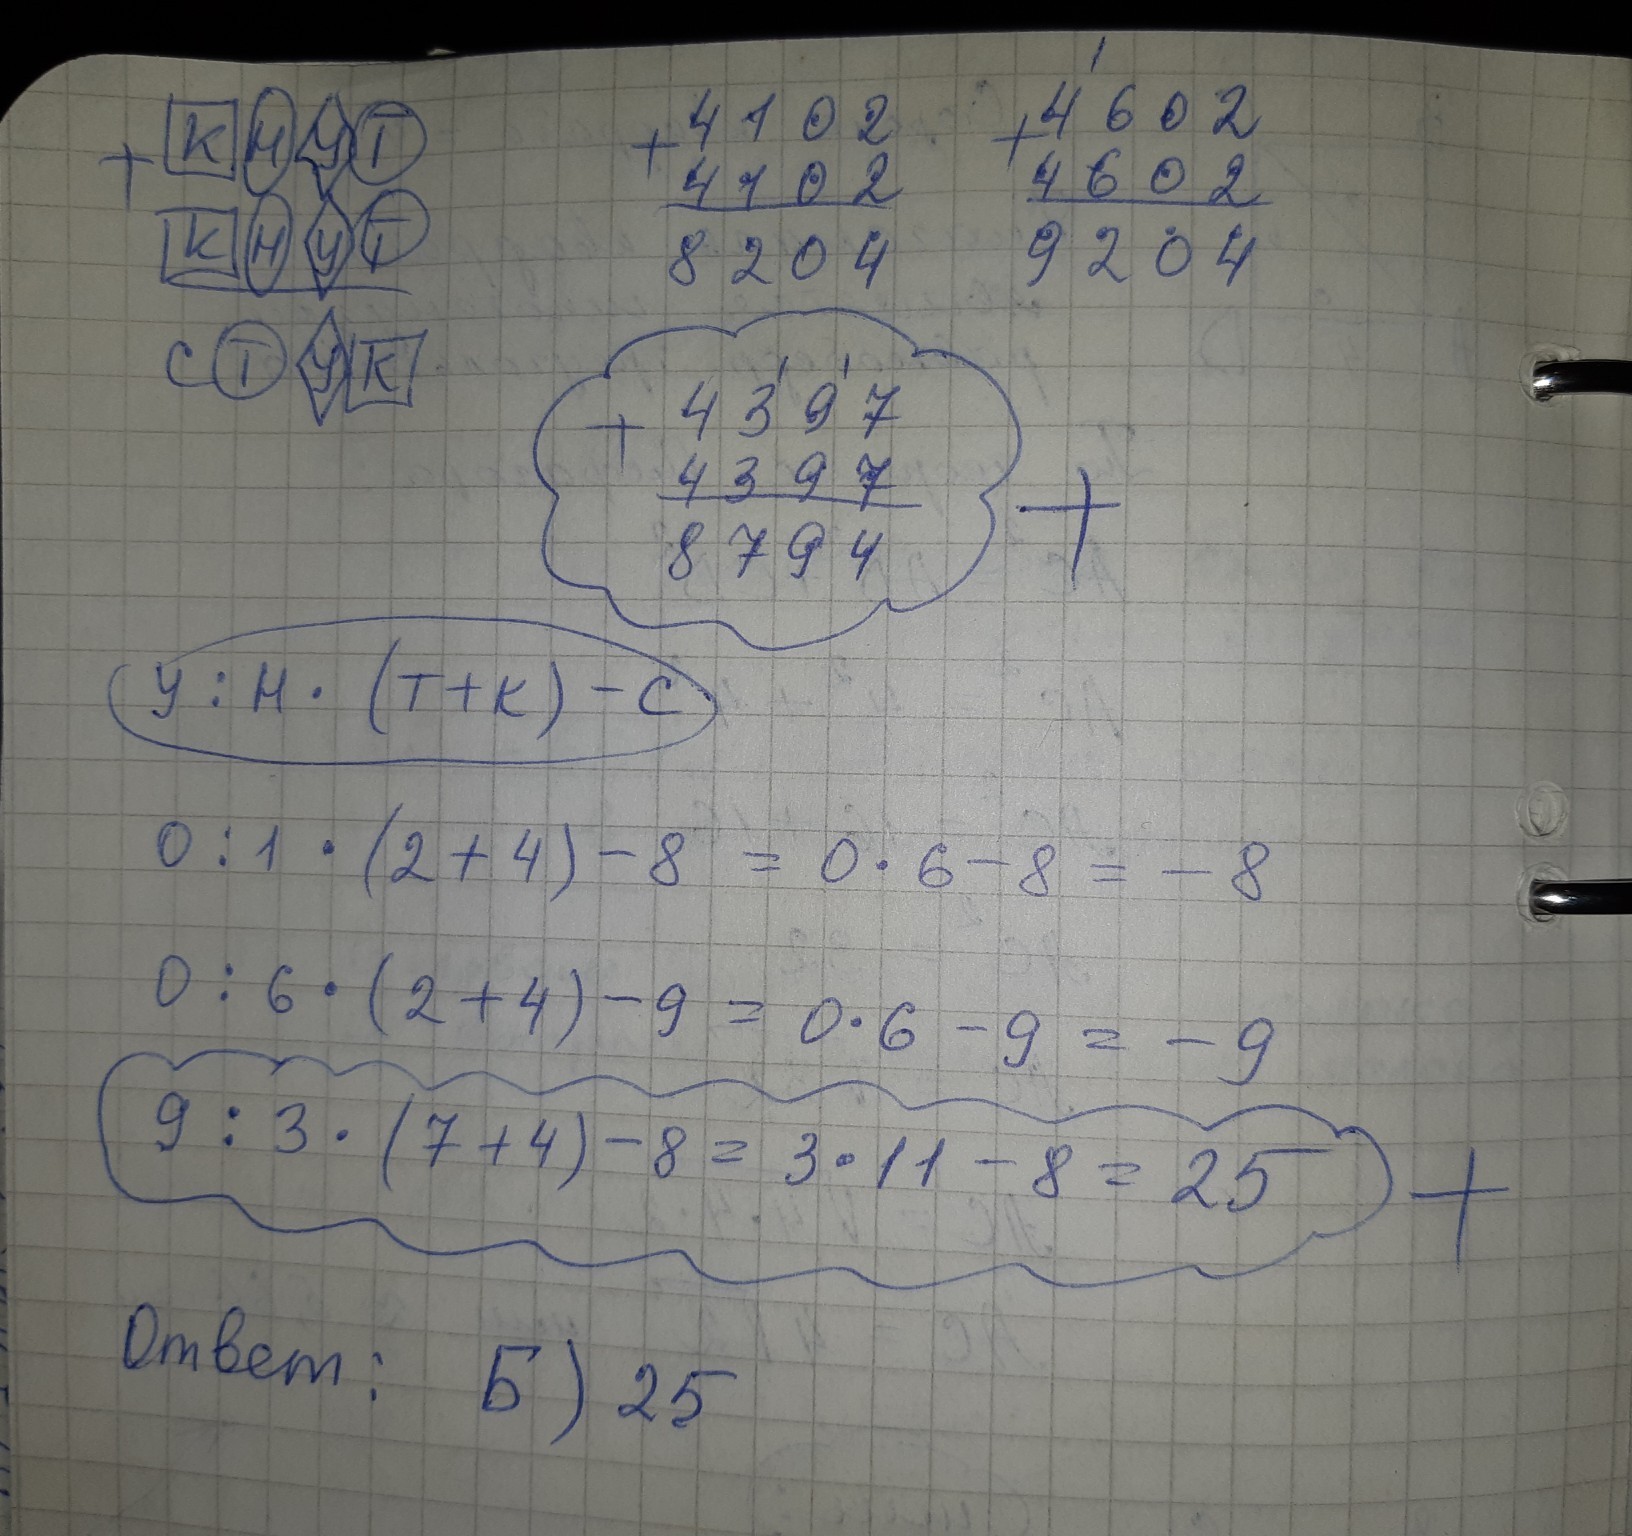 + КНУТ
КНУТ
СТУК
+ 4102
4102
8204
1
+ 4602
4602
9204
1 1
+ 4397
4397
8794
+
У : Н · (Т + К) - С
0 : 1 · (2 + 4) - 8 = 0 · 6 - 8 = - 8
0 : 6 · (2 + 4) - 9 = 0 · 6 - 9 = - 9
9 : 3 · (7 + 4) - 8 = 3 · 11 - 8 = 25 +
Ответ: Б) 25